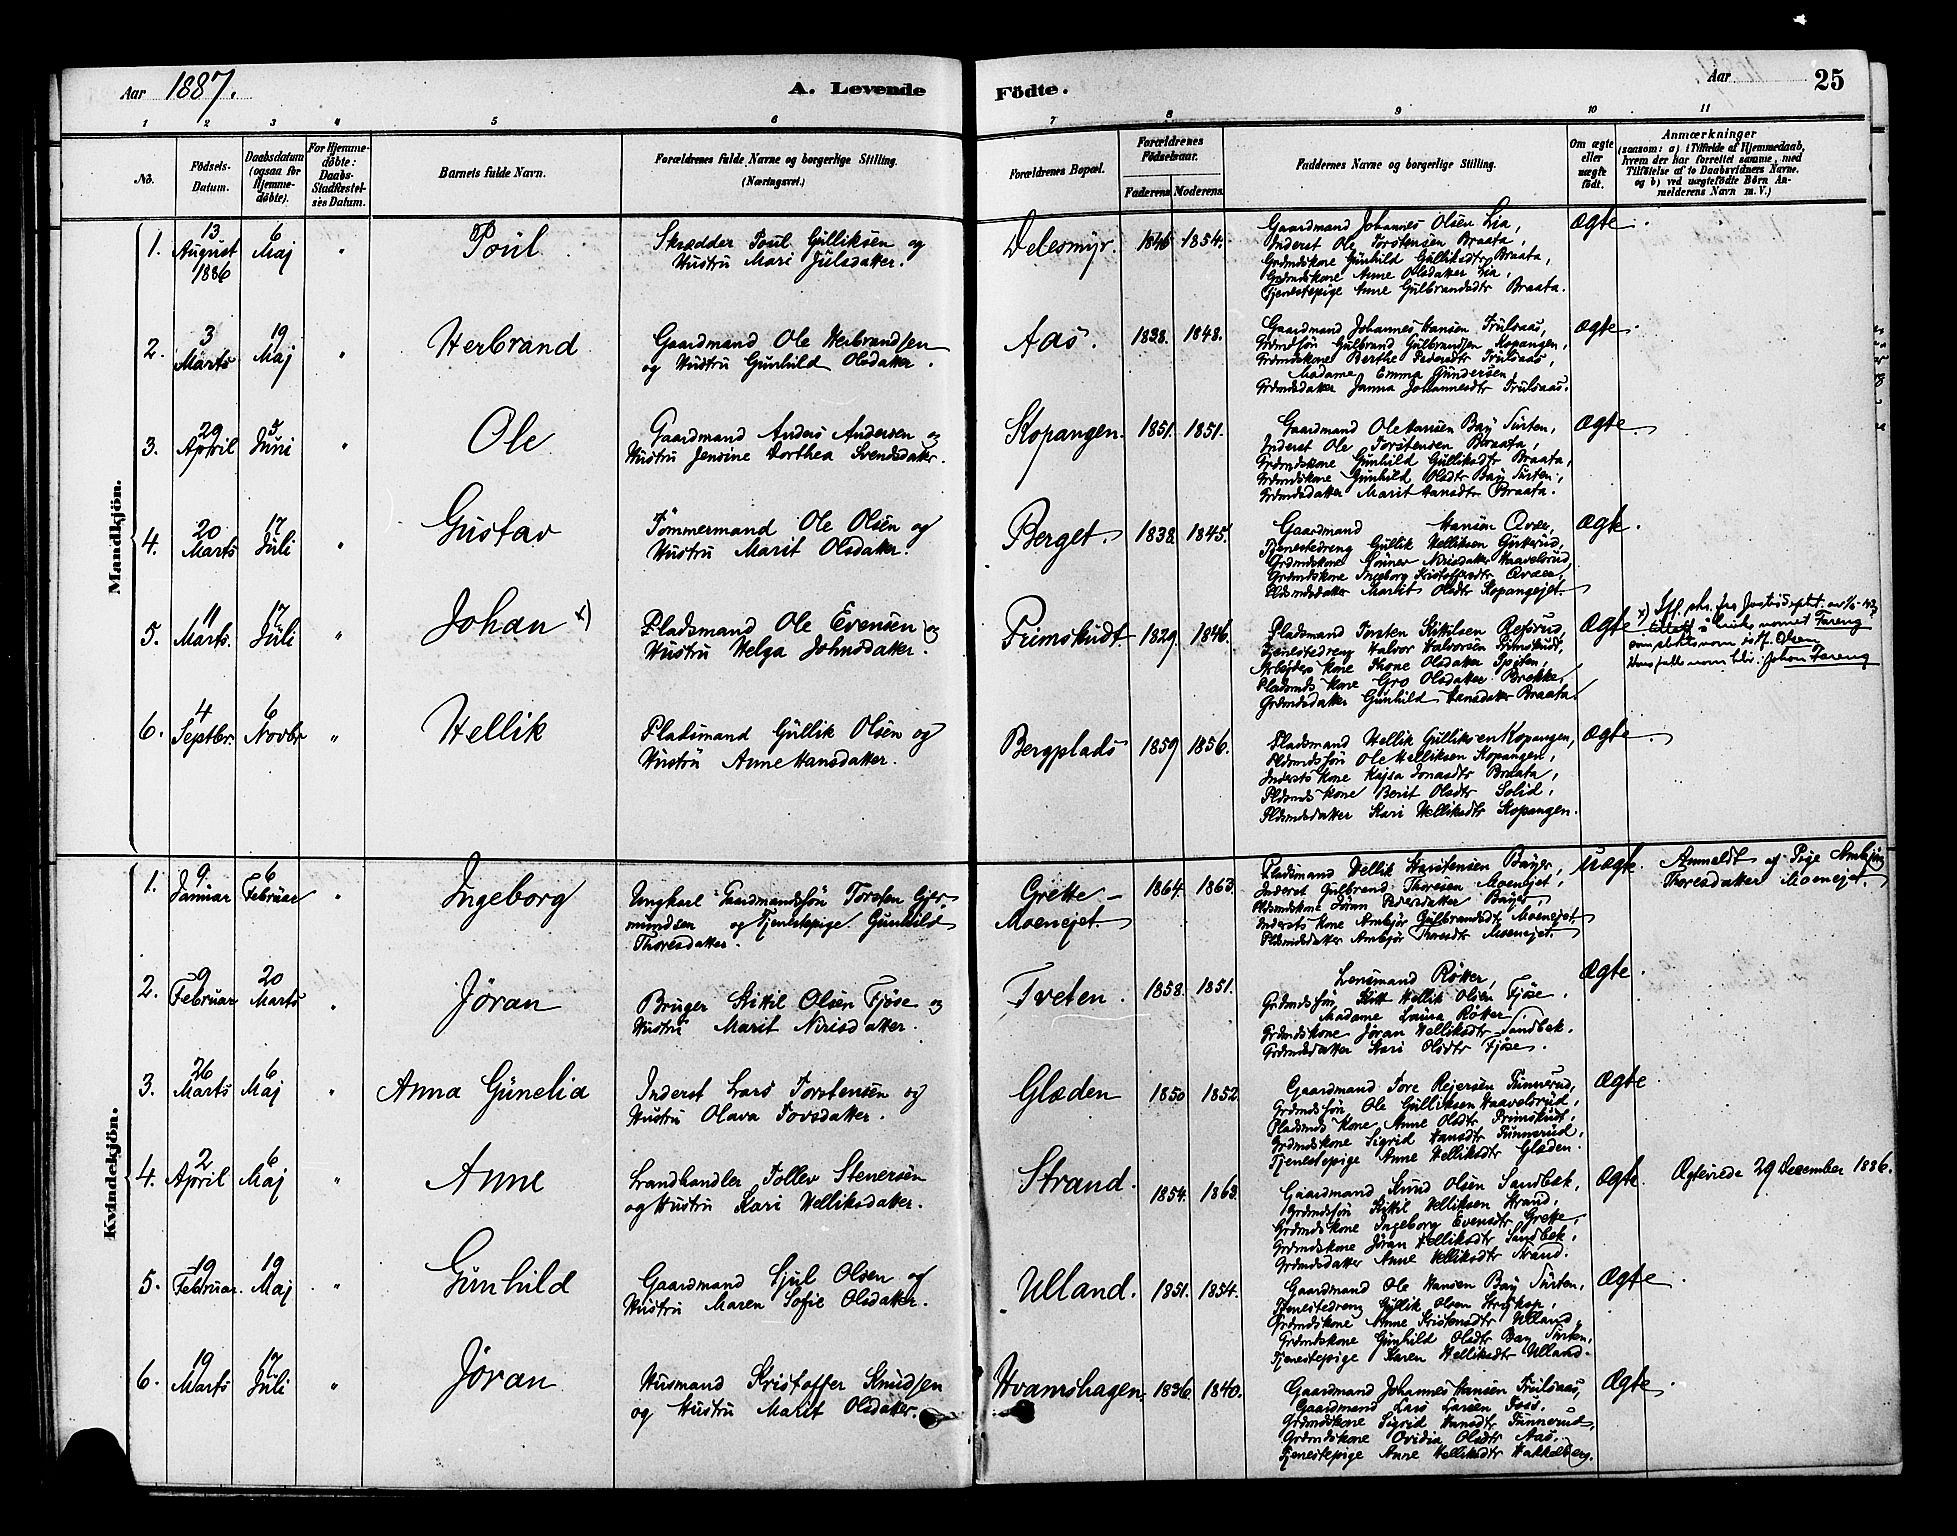 Aar 1887.
A. Levende Födte.
Aar
25
1 2 3 4 5 6 7 8 9 10 11
No.
Födsels-Datum.
Daabsdatum (ogsaa for Hjemmedöbte).
For Hjemmedöbte: Daabs-Stadfæstelses Datum.
Barnets fulde Navn.
Forældrenes fulde Navne og borgerlige Stilling.
(Næringsvei.)
Forældrenes Bopæl.
Forældrenes Födselsaar.
Faderens. Moderens.
Faddernes Navne og borgerlige Stilling.
Om ægte eller uægte födt.
Anmærkninger
(saasom: a) i Tilfælde af Hjemmedaab, hvem der har forrettet samme, med Tilföielse af to Daabsvidners Navne. og b) ved uægtefödte Börn Anmelderens Navn m. V.)
Mandkjön.
1. 13 August 1886 6 Maj " Poul
Skrædder Poul Gulliksen og
Hustru Mari Julsdatter.
Delesmyr. 1846 1854.
Gaardmand Johannes Olsen Lia,
Inderst Ole Torstensen Braata,
Grdmdskone Gunhild Gulliksdtr Braata,
Grdmdskone Anne Olsdatter Lia,
Tjenestepige Anne Gulbrandsdtr Braata.
Ægte
2. 3 Marts 19 Maj " Herbrand
Gaardmand Ole Herbrandsen
og Hustru Gunhild Olsdatter.
Aas. 1838. 1848.
Gaardmand Johannes Hansen Trulsaas,
Grdmdsøn Gulbrand Gulbrandsen Kopangen,
Grdmdskone Berthe Pedersdtr Trulsaas,
Madame Emma Gundersen,
Grdmdsdatter Janna Johannesdtr Trulsaas.
Ægte.
3. 29 April 5 Juni " Ole
Gaardmand Anders Andersen og
Hustru Jensine Dorthea Svendsdatter.
Kopangen. 1851. 1851.
Gaardmand Ole Hansen Bay Turten,
Inderst Ole Torstensen Braata,
Grdmdskone Gunhild Gulliksdtr Braata,
Grdmdskone Gunhild Olsdtr Bay Turten,
Grdmdsdatter Marit Hansdtr Braata.
Ægte.
4. 20 Marts 17 Juli " Gustav
Tömmermand Ole Olsen og
Hustru Marit Olsdatter.
Berget 1838. 1845.
Gaardmand Hansen Qvær,
Tjenestedreng Gullik Helliksen
Grdmdskone Nirisdatter Haavelsrud,
Grdmdskone Ingeborg Kristoffersdtr Qvær,
Pldsmdsdatter Marit Olsdtr Kopangejet.
Ægte.
5. 11 Marts. 17 Juli " Johan x)
Pladsmand Ole Evensen og
Hustru Helga Johnsdatter.
Primskudt. 1829. 1846.
Pladsmand Torsten Kittilsen Refsrud,
Tjenestedreng Halvor Halvorsen Primskudt,
Arbejders Kone Thone Olsdatter
Pladsmds Kone Gro Olsdatter Brekke,
Grdmdsdatter Gunhild Hansdatter Braata.
Ægte
x) Ifl. skr. fra Justisdeptet
bruke navnet Fareng
som slektsnavn istf. Olsen
Hans fulle navn blir: Johan Fareng
6. 4 Septbr. 6 Novbr " Hellik
Pladsmand Gullik Olsen og
Hustru Anne Hansdatter.
Bergplads 1859 1856.
Pladsmand Hellik Gulliksen Kopangen,
Pldsmdsøn Ole Helliksen Kopangen,
Inderstskone Kajsa Jonasdtr Braata,
Pldsmdskone Berit Olsdtr Solid,
Pldsmdsdatter Kari Helliksdtr Kopangen.
Ægte.
Kvindekjön.
1. 9 Januar 6 Februar " Ingeborg
Ungkarl Gaardmandssön Torsten Gjer-
mundsen og Tjenestepige Gunhild
Thoresdatter.
Grette –
Moenejet. 1864. 1863.
Pladsmand Hellik Karstensen Bayer,
Inderst Gulbrand Thoresen Moenejet,
Pldsmdskone Jöran Pedersdatter Bayer
Inderstskone Ambjör Gulbrandsdtr Moenejet
Pldsmdsdatter Ambjör Thoresdtr Moenejet.
Uægte.
Anmeldt af Pige Ambjör
Thoresdatter Moenejet.
2. 9 Februar 20 Marts " Jöran
Bruger Kittil Olsen Fjöse og
Hustru Marit Nirisdatter.
Tveten. 1858. 1851.
Lensmand Røtter,
Grdmdssøn Hellik Olsen Fjöse.
Madame Laura Røtter
Grdmdskone Jöran Helliksdtr Sandbek.
Grdmdsdatter Kari Olsdtr Fjöse.
Ægte.
3. 26 Marts 6 Maj " Anna Gunelia
Inderst Lars Torstensen og
Hustru Olava Tovsdatter.
Glæden 1850 1852
Gaardmand Tore Rejersen Tunnerud,
Grdmdssön Ole Gulliksen Haavelsrud,
Pladsmds Kone Anne Olsdtr Primskudt,
Grdmdskone Sigrid Hansdtr Tunnerud,
Tjenestepige Anne Helliksdtr Glæden.
Ægte
4. 2 April 6 Maj " Anne
Landhandler Tollev Stenersen
og Hustru Kari Helliksdatter.
Strand. 1854. 1863.
Gaardmand Knud Olsen Sandbek,
Grdmdssön Kittil Helliksen Strand,
Grdmdskone Ingeborg Evensdtr Grette,
Grdmdskone Jöran Helliksdtr Sandbek,
Grdmdsdatter Anne Helliksdtr Strand.
Ægte.
Ægteviede 29 December 1886.
5. 19 Februar. 19 Maj " Gunhild
Gaardmand Sjul Olsen og
Hustru Maren Sofie Olsdatter.
Ulland. 1851. 1854.
Gaardmand Ole Hansen Bay Turten,
Tjenestedreng Gullik Olsen
Grdmdskone Anne Kristensdtr Ulland,
Grdmdskone Gunhild Olsdtr Bay Turten,
Tjenestepige Karen Helliksdtr Ulland.
Ægte
6. 19 Marts 17 Juli " Jöran
Husmand Kristoffer Knudsen
og Hustru Marit Olsdatter.
Hvamshagen. 1836. 1840.
Gaardmand Johannes Hansen Trulsaas,
Gaardmand Lars Larsen Foss.
Grdmdskone Sigrid Hansdtr Tunnerud,
Grdmdskone Ovidia Olsdtr Aas,
Tjenestepige Anne Helliksdtr Hakkelberg.
Ægte